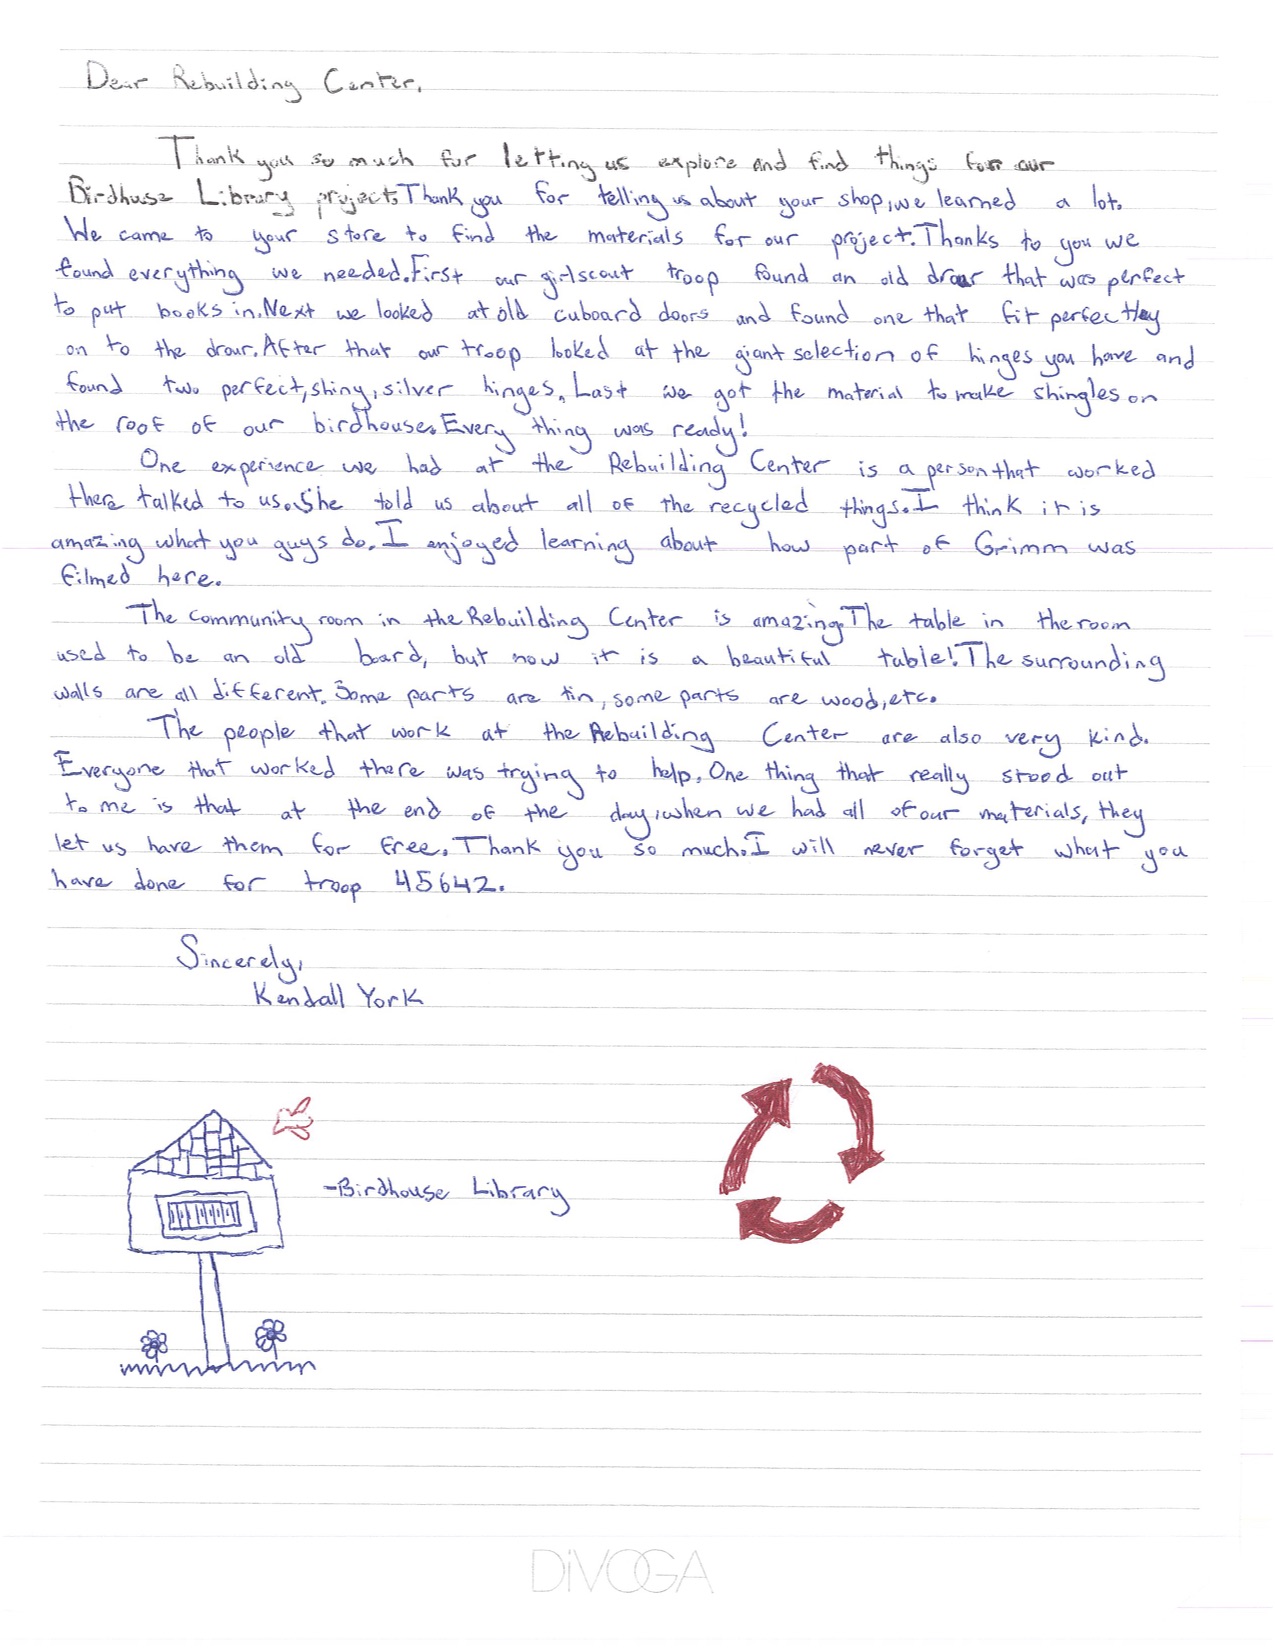 Dear Rebuilding Center,
Thank you so much for letting us explore and find things for our
Birdhuse Library project. Thank you for telling us about your shop, we learned a lot.
We came to your store to find the materials for our project. Thanks to you we
found everything we needed. First our girlscout troop found an old drour that was perfect
to put books in. Next we looked at old cuboard doors and found one that fit perfectley
on to the drour. After that our troop looked at the giant selection of hinges you have and
found two perfect, shiny, silver hinges. Last we got the material to make shingles on
the roof of our birdhouse. Every thing was ready!
One experience we had at the Rebuilding Center is a person that worked
there talked to us. She told us about all of the recycled things. I think it is
amazing what you guys do. I enjoyed learning about how part of Grimm was
filmed here.
The community room in the Rebuilding Center is amazing. The table in the room
used to be an old board, but now it is a beautiful table! The surrounding
walls are all different. Some parts are tin, some parts are wood, etc.
The people that work at the Rebuilding Center are also very kind.
Everyone that worked there was trying to help. One thing that really stood out
to me is that at the end of the day, when we had all of our materials, they
let us have them for free. Thank you so much. I will never forget what you
have done for troop 45642.
Sincerely,
Kendall York
-Birdhouse Library
DiVOGA